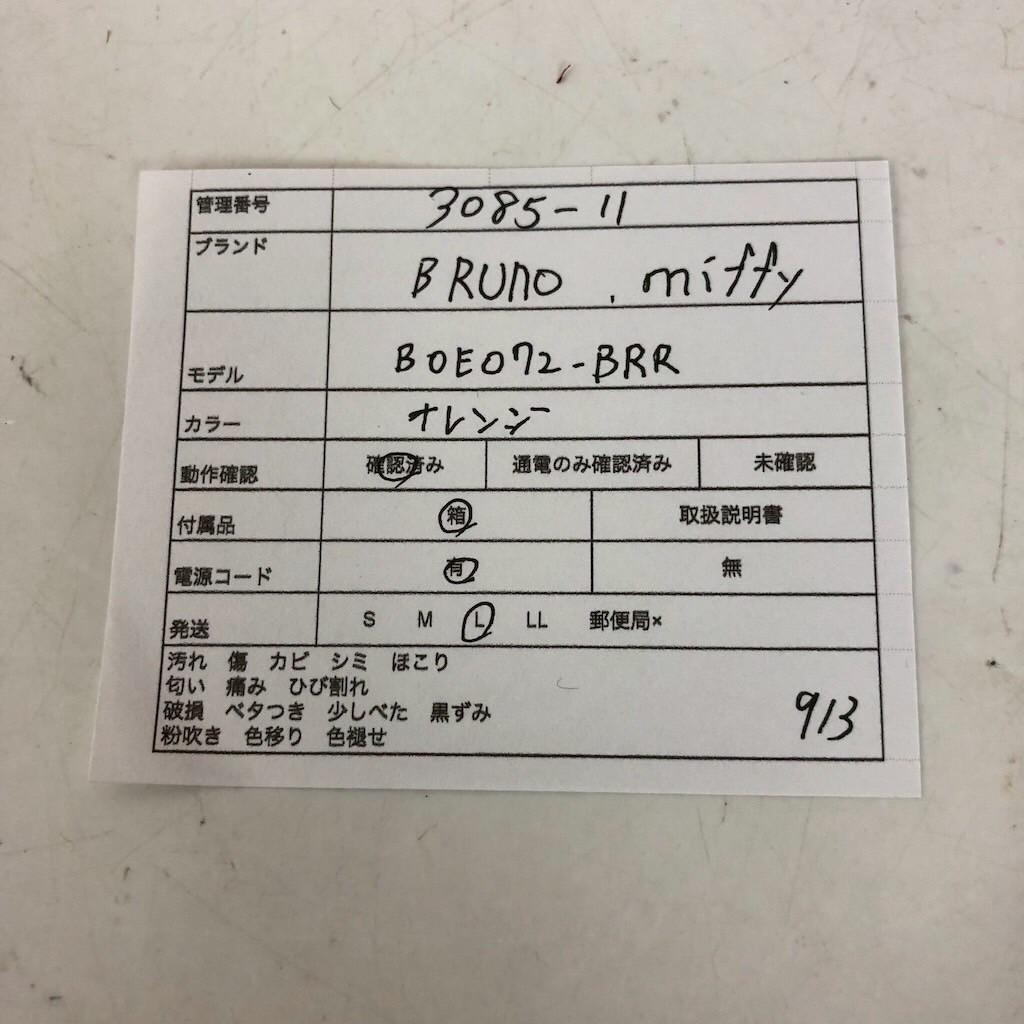 管理番号 3085-11
ブランド BRUNO . miffy
モデル BOE072-BRR
カラー オレンジ
動作確認 確認済み 通電のみ確認済み 未確認
付属品 箱 取扱説明書
電源コード 有 無
発送 S M L LL 郵便局×
汚れ 傷 カビ シミ ほこり
匂い 痛み ひび割れ
破損 ベタつき 少しべた 黒ずみ
粉吹き 色移り 色褪せ
913